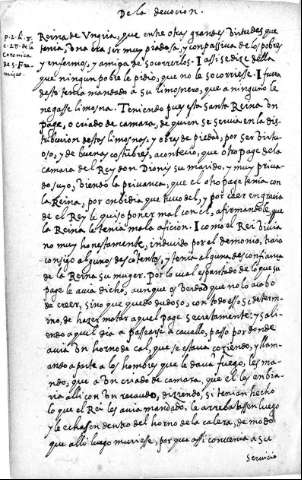 De la deuocion.
p. 2. l. 8.
c. 27. de la
Coronica
de S. Fran
cisco.
Reina de Vngria, que entre otras grandes virtudes que
tenia, era ser muy piadosa, y conpassiua de los pobres
y enfermos, y amiga de socorrerlos. I assi se dize della
que ningun pobre le pidio, que no le socorriese. I fuera
desto tenia mandado à su limosnero, que a ninguno le
negasse limosna. Teniendo pues esta santa Reina vn
page, o criado de camara, de quien se seruia en la dis
tribucion destas limosnas, y obras de piedad, por ser virtuo
oso, y de buenas costũbres, acontecio, que otro page de la
camara del Rey don Dionys su marido, y muy priua
do suyo, viendo la priuança, que el otro page tenia con
la Reina, por enbidia que tuuo del, y por caer en gracia
de el Rey le quiso poner mal con el, afirmandole, que
la Reina le tenia mala aficion. I como el Rei biuia
no muy honestamente, induzido por el demonio, traia
consigo algunos descõtentos, y tenia alguna desconfiança
de la Reina su muger. Por lo qual espantado de lo que su
page le auia dicho, aunque es verdad que no lo acabo
de creer, sino que quedo dudoso, con todo esso, se determi
no, de hazer matar aquel page secretamente: y sali
endo aquel dia a passearse a cauallo, passo por donde
auia vn horno de cal, que se estaua coziendo, y llaman
do a parte a los hombres que le dauã fuego, les man
do, que a vn criado de camara, que el les enbia
ria alli con vn recaudo, diziendo, si tenian hecho
lo que el Rei les auia mandado, le arrebatassen luego
y le echassen dentro del horno de la calera, de modo
que alli luego muriese, porque assi conuenia a su
seruicio